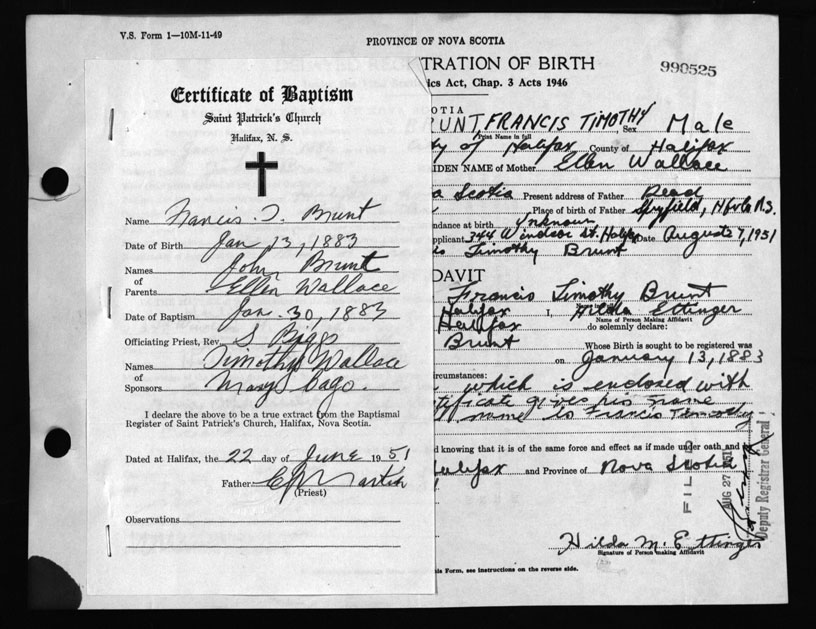 V.S. Form 1—10M-11-49
PROVINCE OF NOVA SCOTIA
TRATION OF BIRTH
ics Act, Chap. 3 Acts 1946
990525
Certificate of Baptism
Saint Patrick's Church
Halifax, N. S.
Name Francis. T. Brunt
Date of Birth Jan 13, 1883
Names of Parents John Brunt
Ellen Wallace
Date of Baptism Jan. 30, 1883
Officiating Priest, Rev. S Biggs
Names of Sponsors Timothy Wallace
Mary
I declare the above to be a true extract from the Baptismal
Register of Saint Patrick's Church, Halifax, Nova Scotia.
Dated at Halifax, the 22 day of June 1951
Father Martin
(Priest)
Observations
OTIA
BRUNT, FRANCIS TIMOTHY Sex Male
Print Name in full
ty of Halifax County of Halifax
IDEN NAME of Mother Ellen Wallace
a Scotia Present address of Father Dead
Place of birth of Father Spryfield, Hfx Co N.S.
ndance at birth Unknown
pplicant 344 Windsor St. Halifax Date August 7, 1951
is Timothy Brunt
DAVIT
Francis Timothy Brunt
Halifax I, Hilda Ettinger
Name of Person Making Affidavit
Halifax do solemnly declare:
Brunt Whose Birth is sought to be registered was
on January 13, 1883
ircumstances:
which is enclosed with
tificate gives his name
name to Francis Timothy
d knowing that it is of the same force and effect as if made under oath and
Halifax and Province of Nova Scotia
FILED
AUG 27 1951
Deputy Registrar General
Hilda M. Ettinger
Signature of Person making Affidavit
is Form, see instructions on the reverse side.